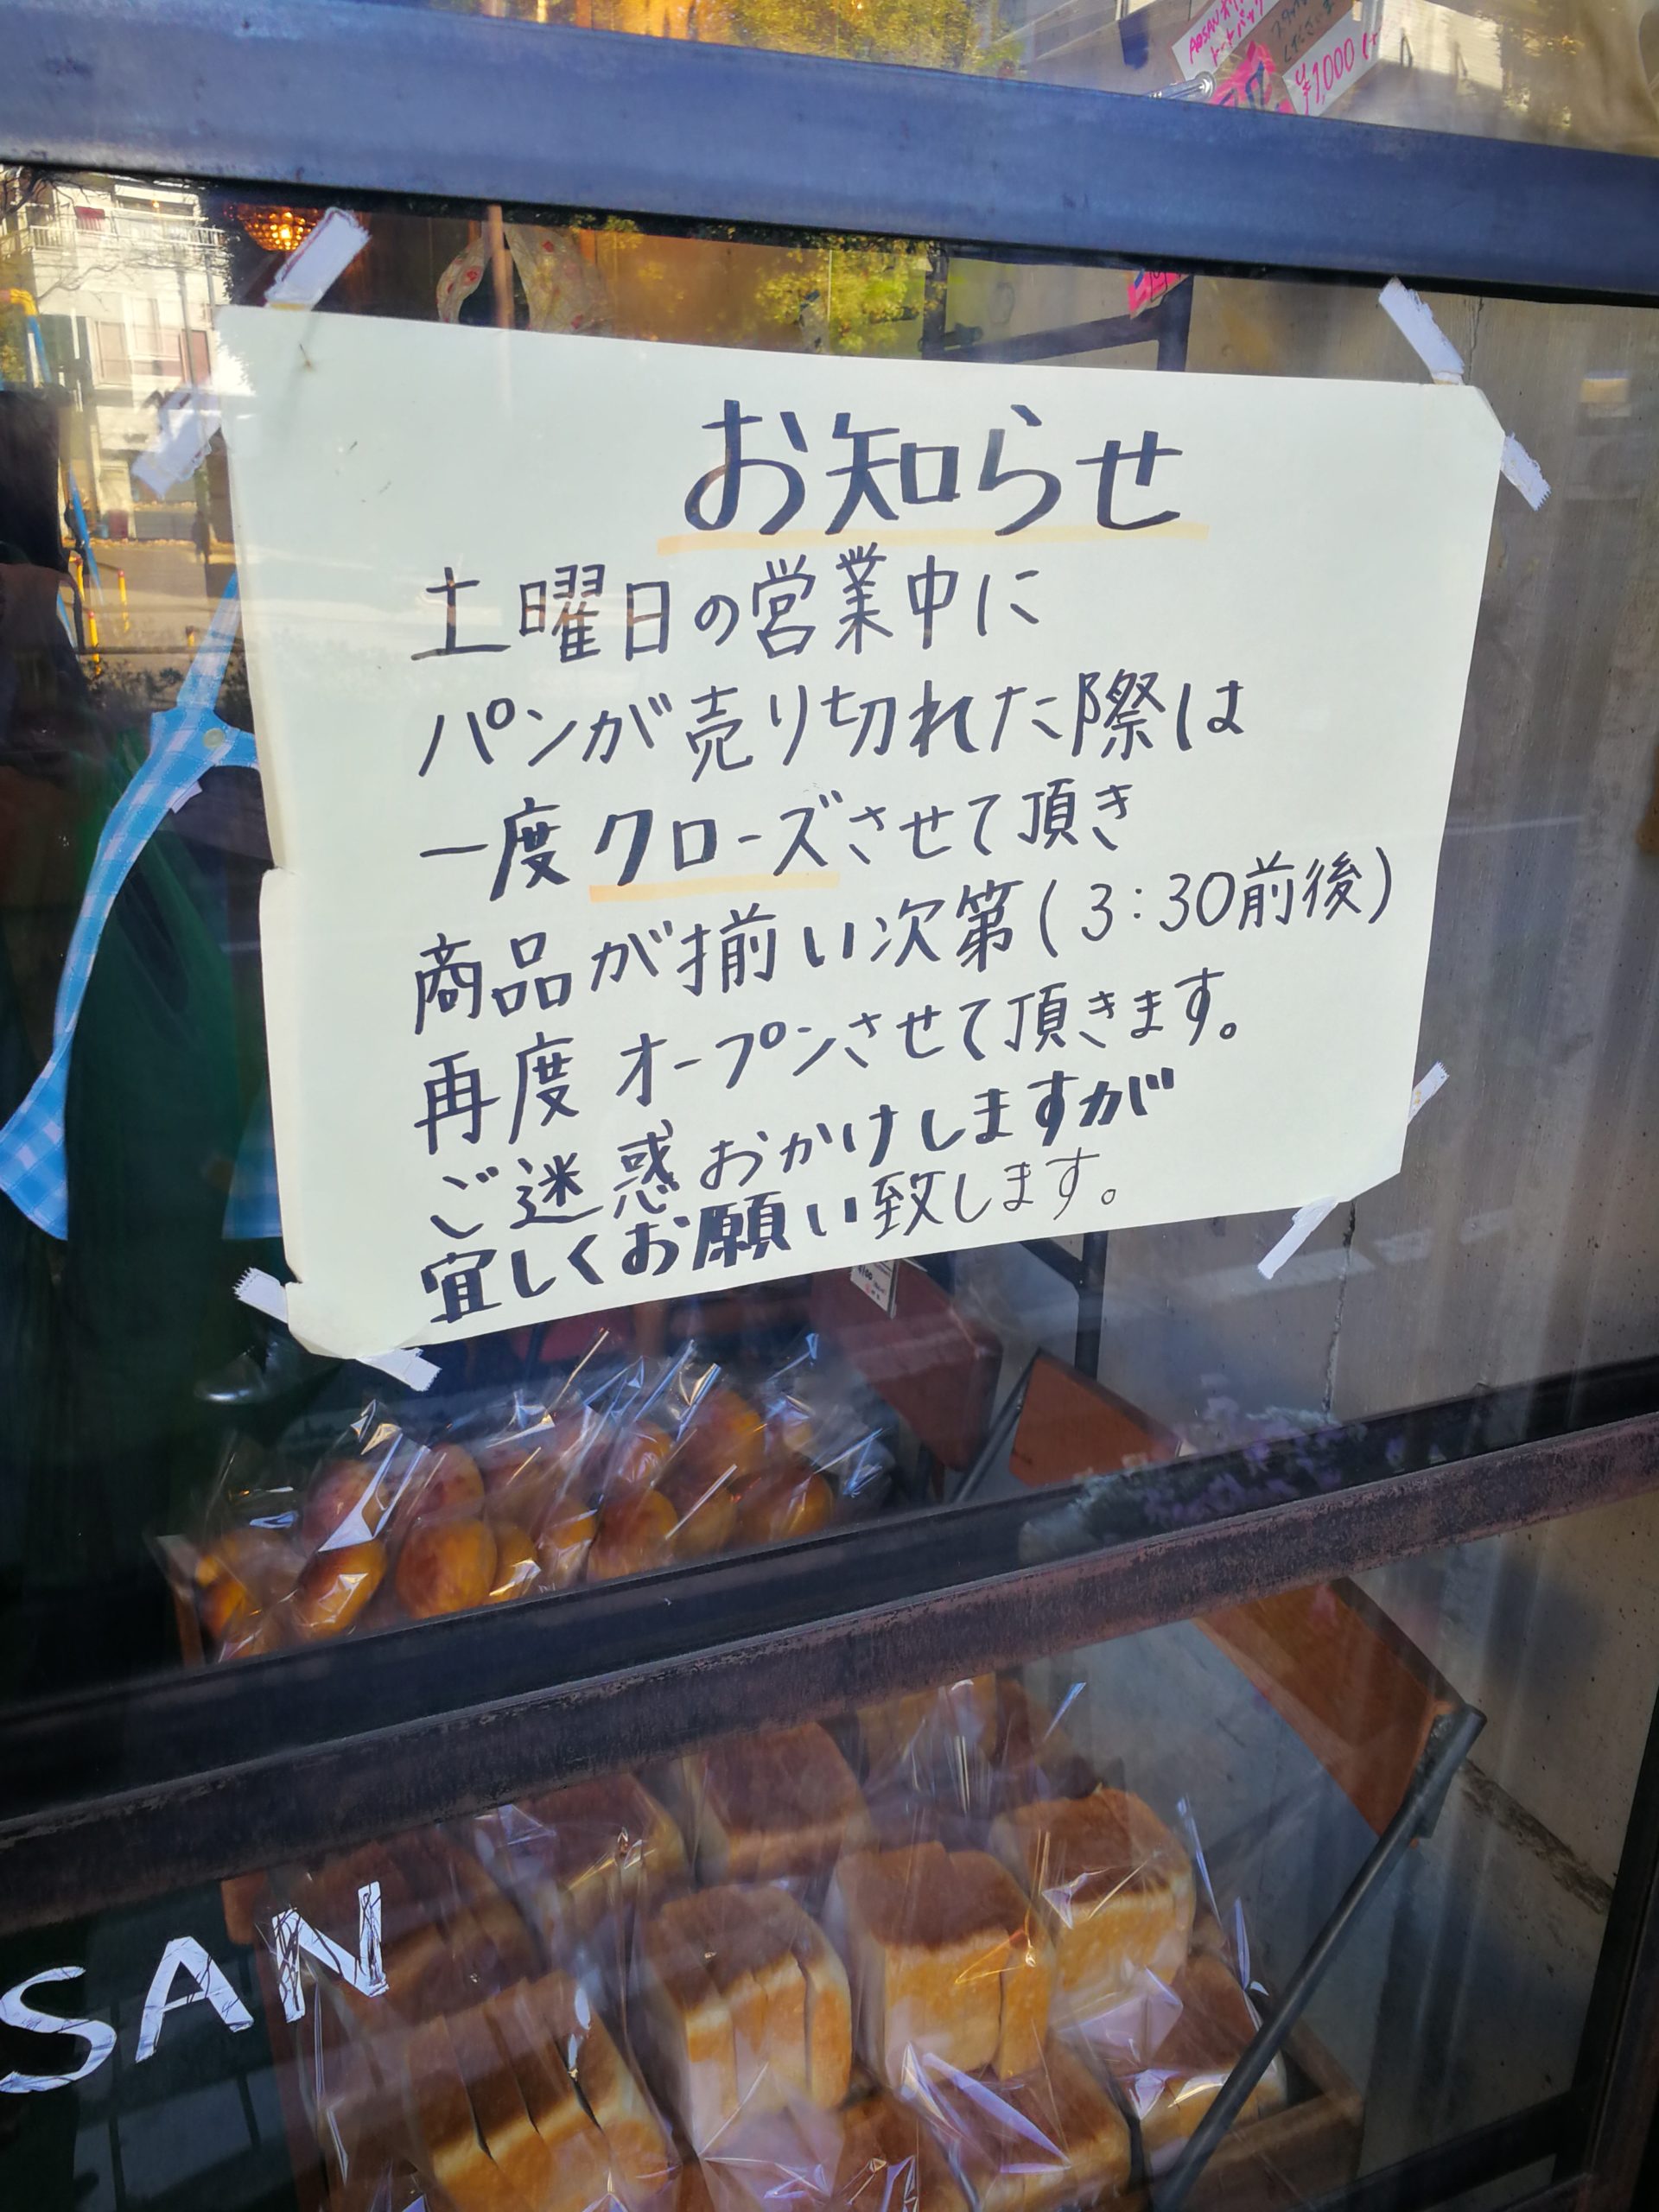 ¥1,000
お知らせ
土曜日の営業中に
パンが売り切れた際は
一度クローズさせて頂き
商品が揃い次第(3:30前後)
再度オープンさせて頂きます。
ご迷惑おかけしますが
宜しくお願い致します。
SAN